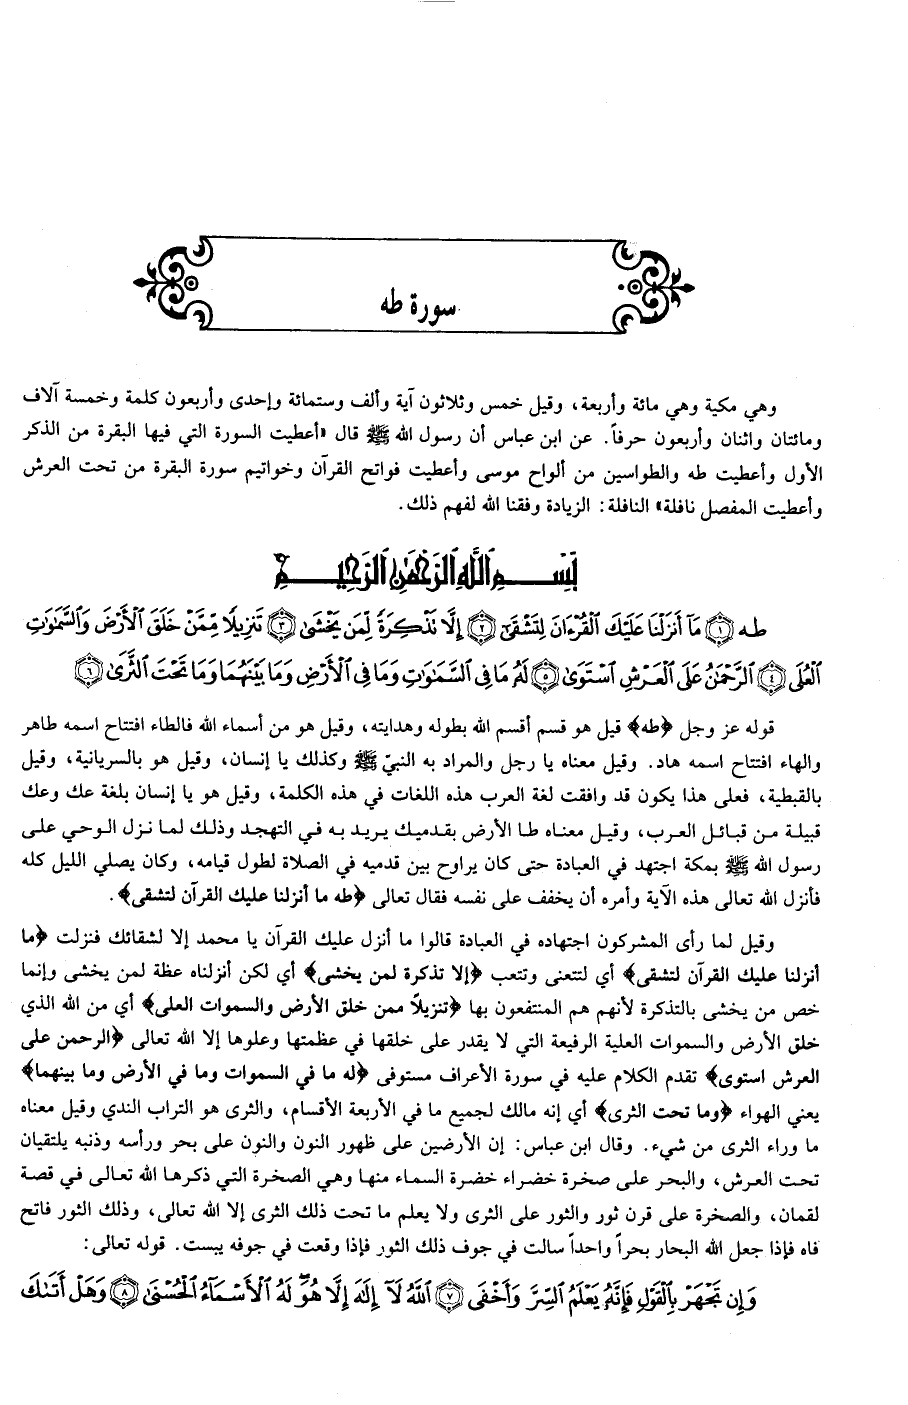 سورة طه
وهي مكية وهي مائة وأربعة، وقيل خمس وثلاثون آية وألف وستمائة وإحدى وأربعون كلمة وخمسة آلاف
ومائتان واثنان وأربعون حرفاً. عن ابن عباس أن رسول الله ﷺ قال «أعطيت السورة التي فيها البقرة من الذكر
الأول وأعطيت طه والطواسين من ألواح موسى وأعطيت فواتح القرآن وخواتيم سورة البقرة من تحت العرش
وأعطيت المفصل نافلة» النافلة: الزيادة وفقنا الله لفهم ذلك.
بِسْمِ اللَّهِ الرَّحْمَٰنِ الرَّحِيمِ
طه ﴿١﴾ مَآ أَنزَلْنَا عَلَيْكَ ٱلْقُرْءَانَ لِتَشْقَىٰٓ ﴿٢﴾ إِلَّا تَذْكِرَةً لِّمَن يَخْشَىٰ ﴿٣﴾ تَنزِيلًا مِّمَّنْ خَلَقَ ٱلْأَرْضَ وَٱلسَّمَٰوَٰتِ
ٱلْعُلَى ﴿٤﴾ ٱلرَّحْمَٰنُ عَلَى ٱلْعَرْشِ ٱسْتَوَىٰ ﴿٥﴾ لَهُۥ مَا فِى ٱلسَّمَٰوَٰتِ وَمَا فِى ٱلْأَرْضِ وَمَا بَيْنَهُمَا وَمَا تَحْتَ ٱلثَّرَىٰ ﴿٦﴾
قوله عز وجل ﴿طه﴾ قيل هو قسم أقسم الله بطوله وهدايته، وقيل هو من أسماء الله فالطاء افتتاح اسمه طاهر
والهاء افتتاح اسمه هاد. وقيل معناه يا رجل والمراد به النبيّ ﷺ وكذلك يا إنسان، وقيل هو بالسريانية، وقيل
بالقبطية، فعلى هذا يكون قد وافقت لغة العرب هذه اللغات في هذه الكلمة، وقيل هو يا إنسان بلغة عك وعك
قبيلة من قبائل العرب، وقيل معناه طا الأرض بقدميك يريد به في التهجد وذلك لما نزل الوحي على
رسول الله ﷺ بمكة اجتهد في العبادة حتى كان يراوح بين قدميه في الصلاة لطول قيامه، وكان يصلي الليل كله
فأنزل الله تعالى هذه الآية وأمره أن يخفف على نفسه فقال تعالى ﴿طه ما أنزلنا عليك القرآن لتشقى﴾.
وقيل لما رأى المشركون اجتهاده في العبادة قالوا ما أنزل عليك القرآن يا محمد إلا لشقائك فنزلت ﴿ما
أنزلنا عليك القرآن لتشقى﴾ أي لتتعنى وتتعب ﴿إلا تذكرة لمن يخشى﴾ أي لكن أنزلناه عظة لمن يخشى وإنما
خص من يخشى بالتذكرة لأنهم هم المنتفعون بها ﴿تنزيلاً ممن خلق الأرض والسموات العلى﴾ أي من الله الذي
خلق الأرض والسموات العلية الرفيعة التي لا يقدر على خلقها في عظمتها وعلوها إلا الله تعالى ﴿الرحمن على
العرش استوى﴾ تقدم الكلام عليه في سورة الأعراف مستوفى ﴿له ما في السموات وما في الأرض وما بينهما﴾
يعني الهواء ﴿وما تحت الثرى﴾ أي إنه مالك لجميع ما في الأربعة الأقسام، والثرى هو التراب الندي وقيل معناه
ما وراء الثرى من شيء. وقال ابن عباس: إن الأرضين على ظهور النون والنون على بحر ورأسه وذنبه يلتقيان
تحت العرش، والبحر على صخرة خضراء خضرة السماء منها وهي الصخرة التي ذكرها الله تعالى في قصة
لقمان، والصخرة على قرن ثور والثور على الثرى ولا يعلم ما تحت ذلك الثرى إلا الله تعالى، وذلك الثور فاتح
فاه فإذا جعل الله البحار بحراً واحداً سالت في جوف ذلك الثور فإذا وقعت في جوفه يبست. قوله تعالى:
وَإِن تَجْهَرْ بِٱلْقَوْلِ فَإِنَّهُۥ يَعْلَمُ ٱلسِّرَّ وَأَخْفَى ﴿٧﴾ ٱللَّهُ لَآ إِلَٰهَ إِلَّا هُوَ لَهُ ٱلْأَسْمَآءُ ٱلْحُسْنَىٰ ﴿٨﴾ وَهَلْ أَتَىٰكَ